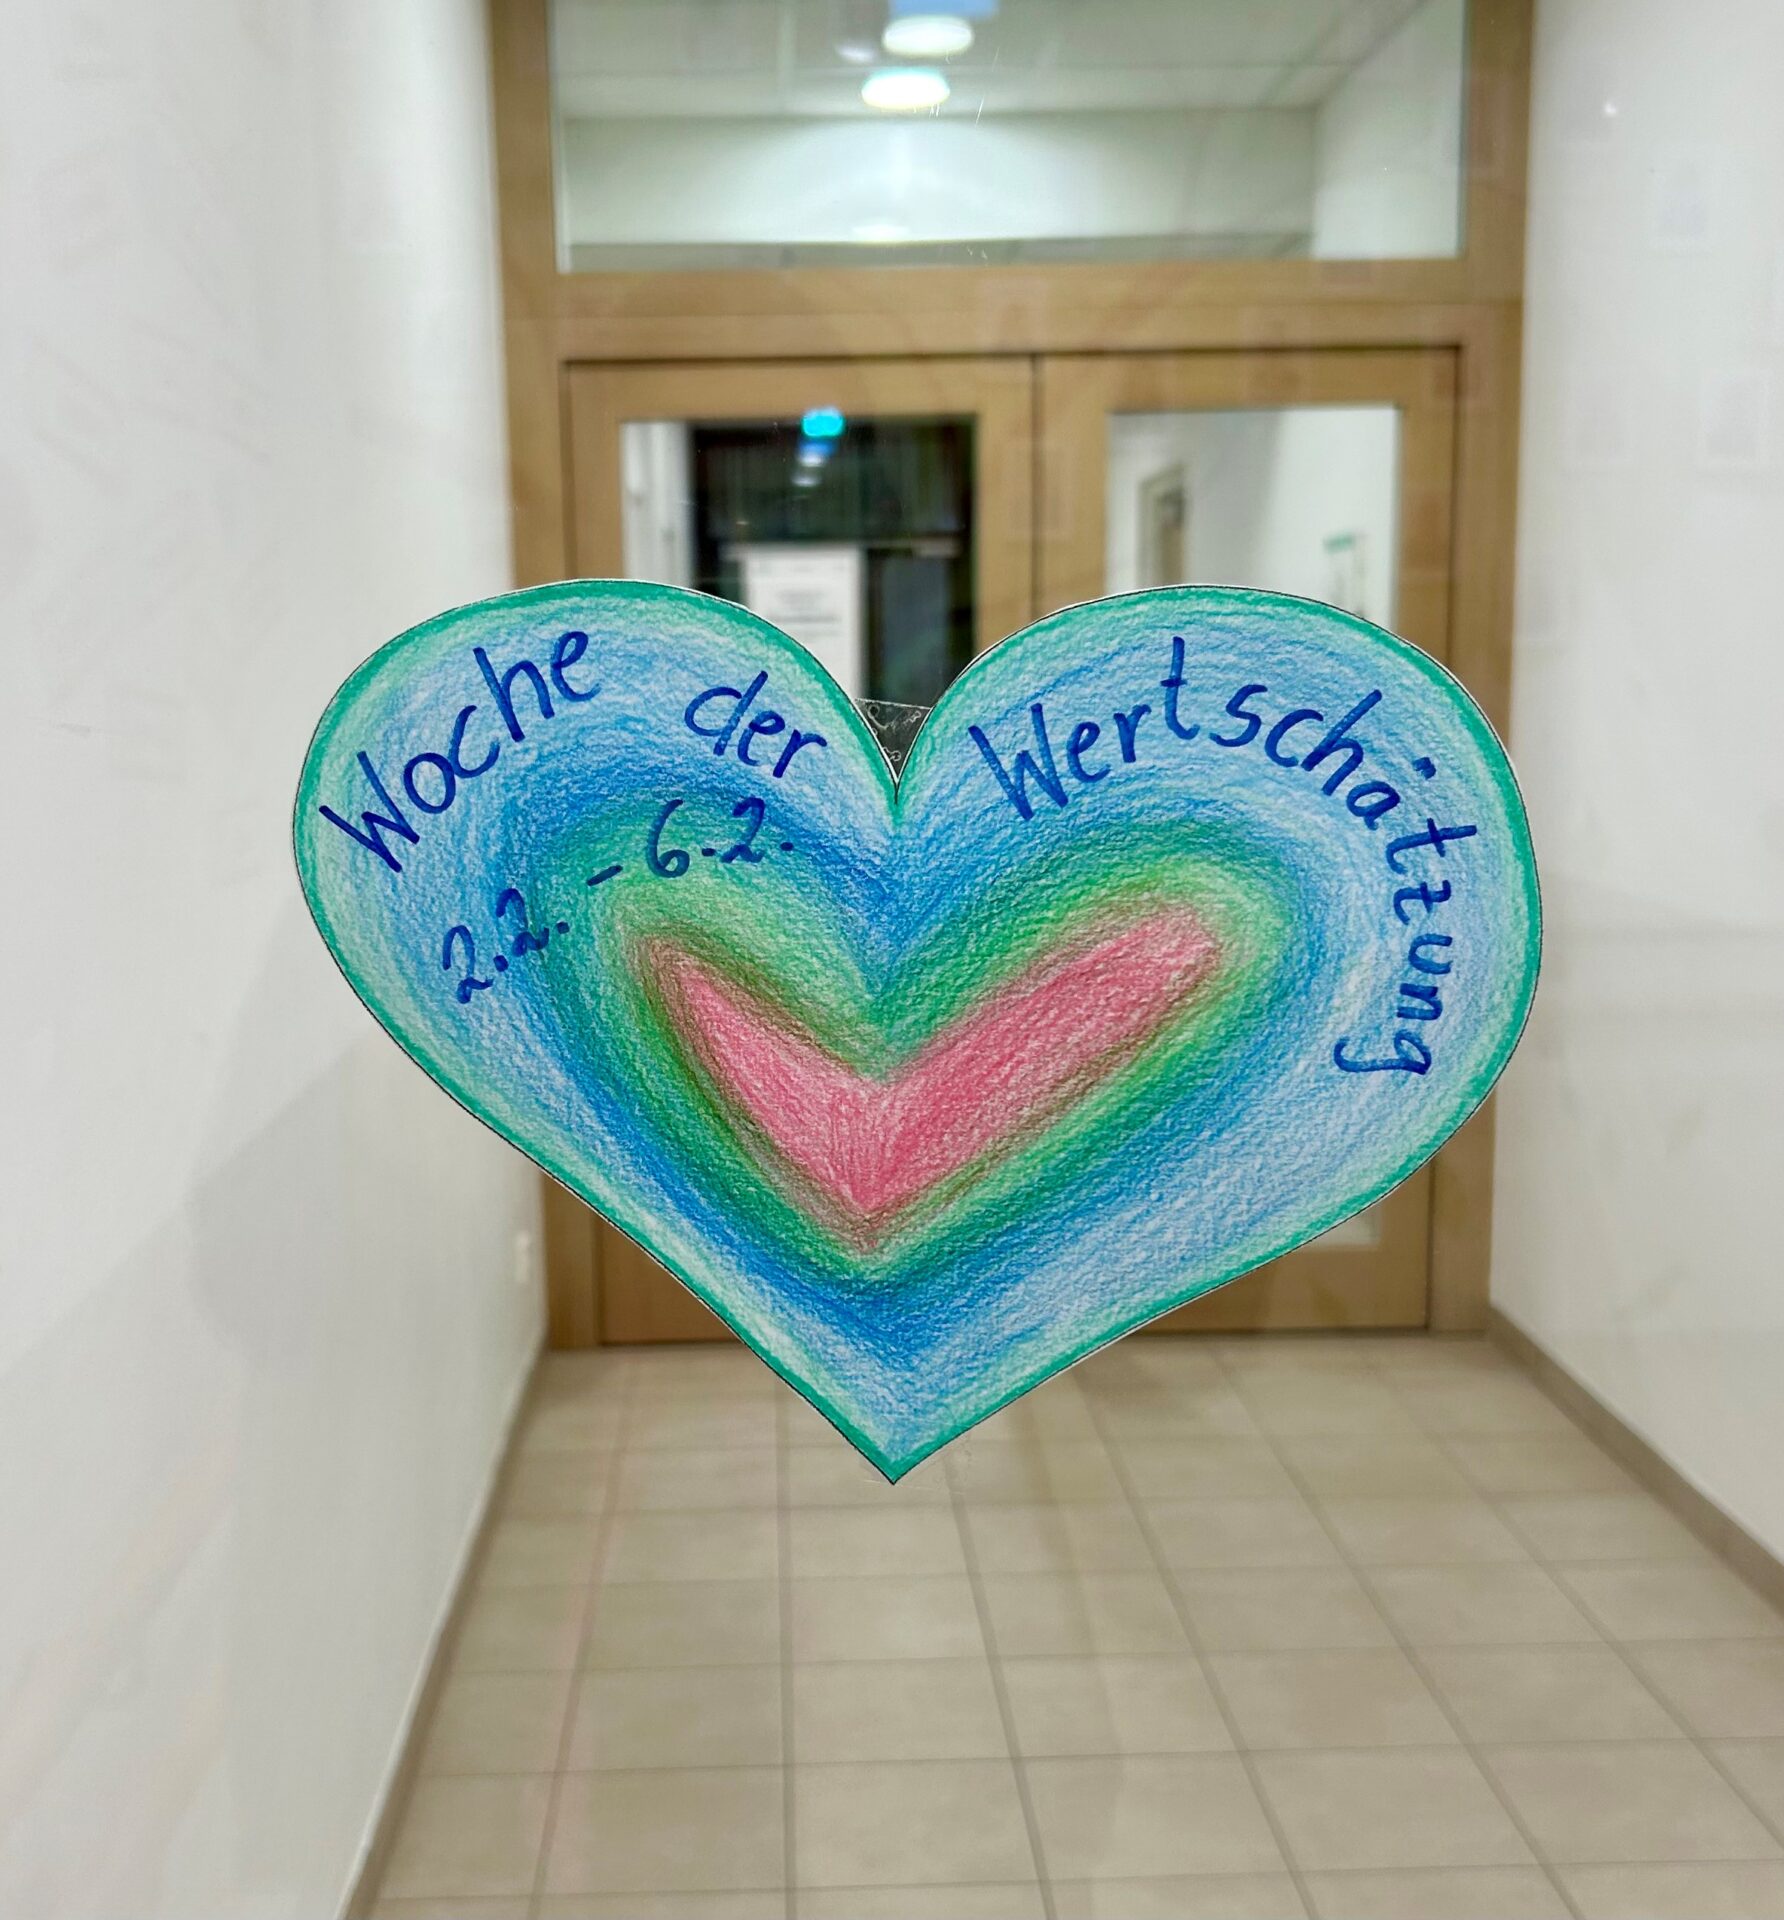 Woche der Wertschätzung
2.2. - 6.2.